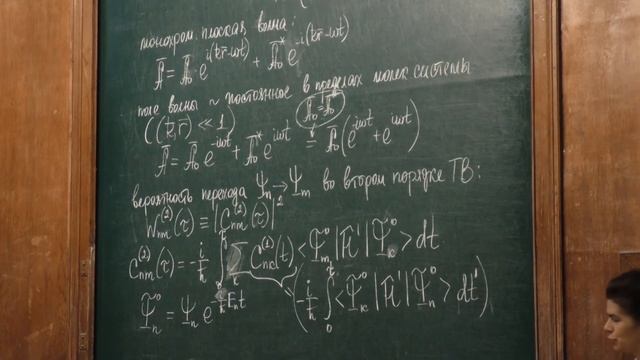 монохром. плоская волна:
A̅ = A̅₀ e^{i(k̅r̅-ωt)} + A̅₀* e^{-i(k̅r̅-ωt)}
поле волны ~ постоянное в пределах молек системы
((k̅, r̅) ≪ 1) A̅₀ = A̅₀*
A̅ = A̅₀ e^{-iωt} + A̅₀* e^{iωt} = A̅₀(e^{-iωt} + e^{iωt})
вероятность перехода Ψₙ → Ψₘ во втором порядке ТВ:
W_{nm}^{(2)}(τ) ≡ |C_{nm}^{(2)}(τ)|²
C_{nm}^{(2)}(τ) = -i/ħ ∫₀^τ Σ_k C_{nk}^{(1)}(t) <Ψ_m^0 |Ĥ'| Ψ_k^0> dt
Ψ_n^0 = Ψ_n e^{-i/ħ E_n t} (-i/ħ ∫₀^t <Ψ_k^0 |Ĥ'| Ψ_n^0> dt')